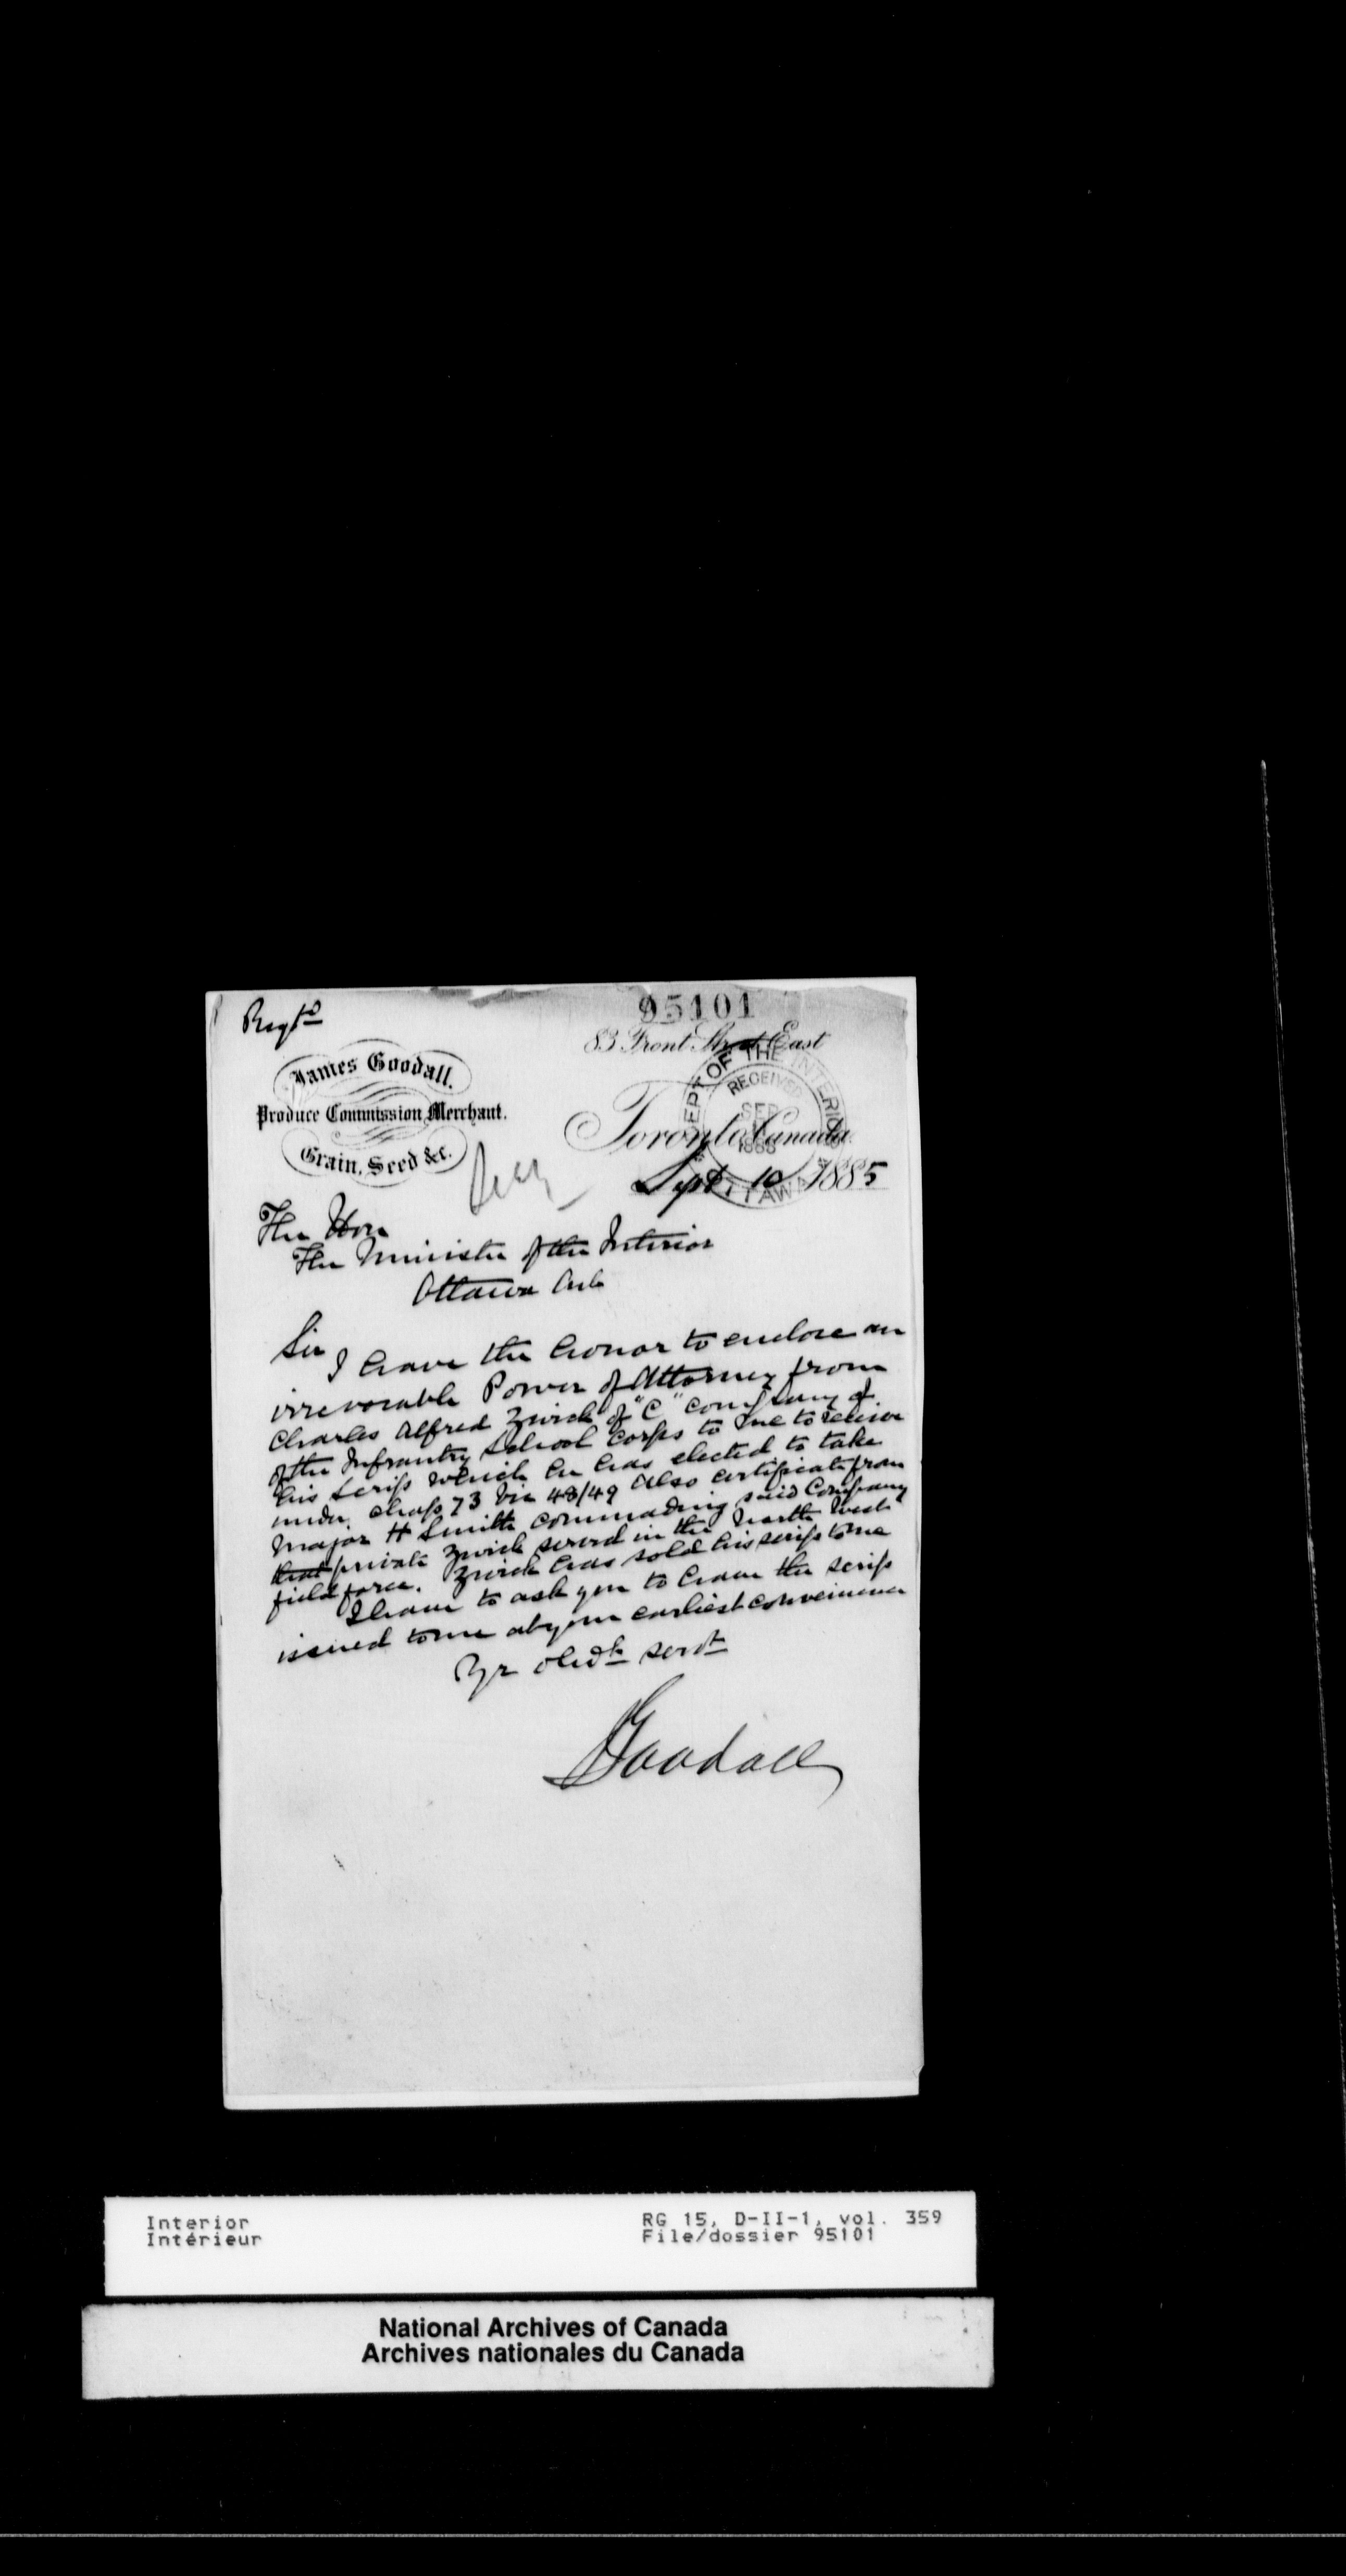 Regtd
95101
83 Front Street East
James Goodall.
Produce Commission Merchant.
Grain, Seed &c.
Toronto, Canada.
DEPT OF THE INTERIOR
RECEIVED
SEP
OTTAWA
Sept. 10 1885
The Hon
The Minister of the Interior
Ottawa Ont
Sir
I have the honor to enclose an
irrevocable Power of Attorney from
Charles Alfred Zwick of "C" company of
of the Infrantry School Corps to me to receive
his scrip which he has elected to take
under chap 73 Vic 48/49 also certificate from
Major H Smith commanding said Company
that private Zwick served in the North West
field force. Zwick has sold his scrip to me
I have to ask you to have the scrip
issued to me at your earliest conveinience
Yr obedt servt
Goodall
Interior
Intérieur
RG 15, D-II-1, vol. 359
File/dossier 95101
National Archives of Canada
Archives nationales du Canada